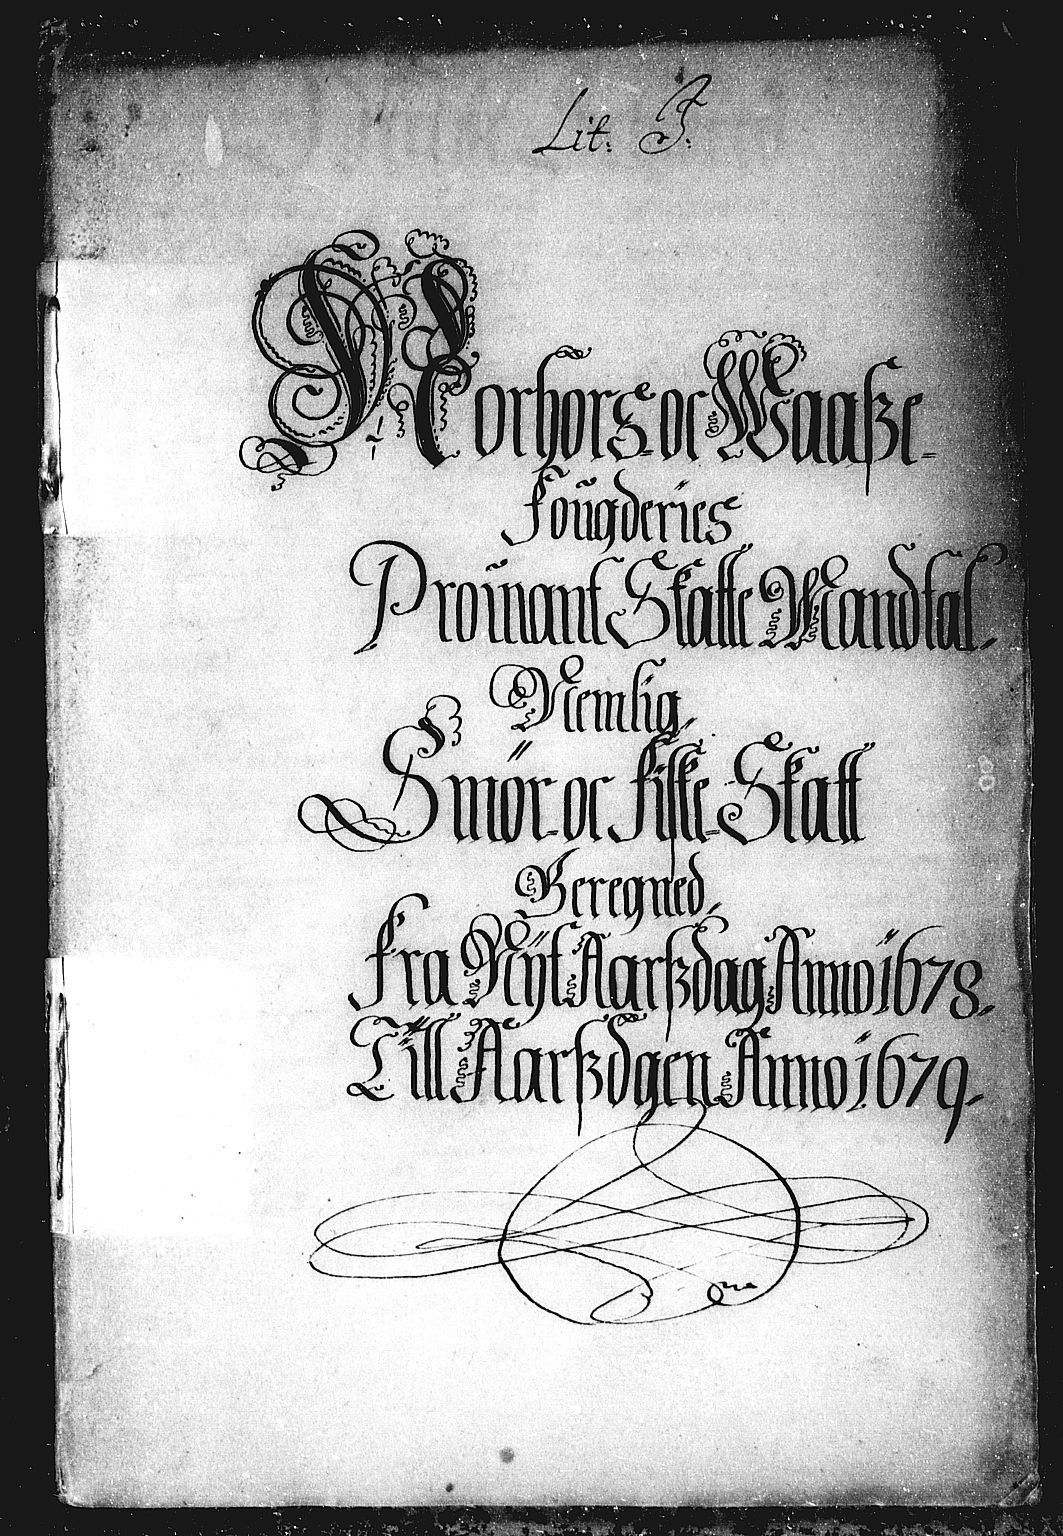 Lit: J:
Norhors oc Waaße
Fougderies
Proviant Skatte Mandtal.
Nemlig,
Smör oc Fiske Skatt
Beregned,
Fra Nyt Aarßdag Anno 1678.
Till Aarßdgen Anno 1679.